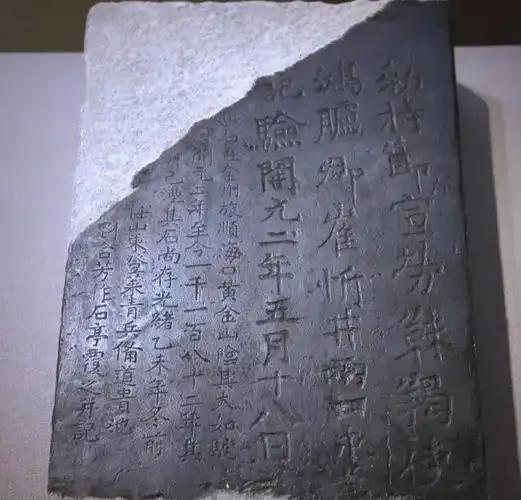 勅持節宣勞靺羯使
鴻臚卿崔忻井兩口永為
記驗開元二年五月十八日
在金州旅順海口黃金山陰其大如駝
開元二年至今一千一百八十二年其
井已湮其石尚存光緒乙未年冬前
任山東登萊青兵備道貴池
劉含芳作石亭覆之并記